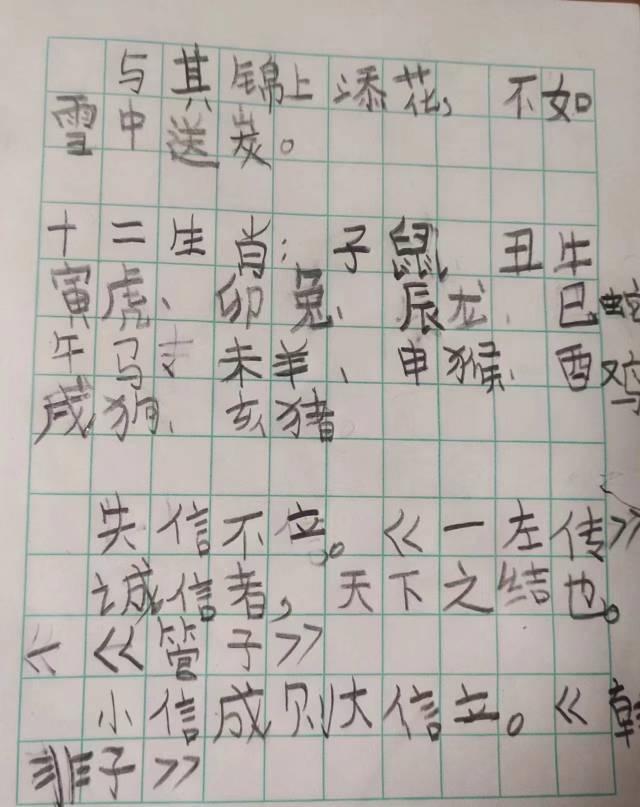 与其锦上添花，不如
雪中送炭。
十二生肖：子鼠、丑牛
寅虎、卯兔、辰龙、巳蛇
午马、未羊、申猴、酉鸡
戌狗、亥猪
失信不立。《一左传》
诚信者，天下之结也。
《《管子》》
小信成则大信立。《韩
非子》